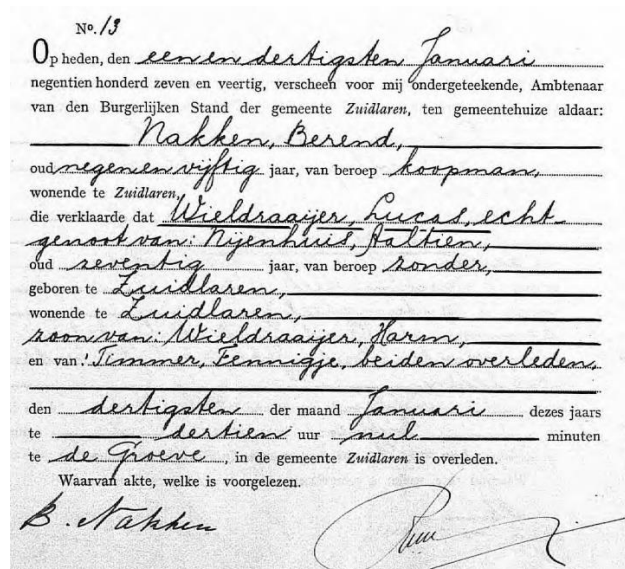 No. 13
Op heden, den een en dertigsten Januari
negentien honderd zeven en veertig, verscheen voor mij ondergeteekende, Ambtenaar
van den Burgerlijken Stand der gemeente Zuidlaren, ten gemeentehuize aldaar:
Nakken, Berend,
oud negen en vijftig jaar, van beroep koopman,
wonende te Zuidlaren,
die verklaarde dat Wieldraaijer, Lucas, echt-
genoot van: Nijenhuis, Aaltien,
oud zeventig jaar, van beroep zonder,
geboren te Zuidlaren,
wonende te Zuidlaren,
zoon van: Wieldraaijer, Harm,
en van: Timmer, Fennigje, beiden overleden,
den dertigsten der maand Januari dezes jaars
te dertien uur nul minuten
te de Groeve, in de gemeente Zuidlaren is overleden.
Waarvan akte, welke is voorgelezen.
B. Nakken